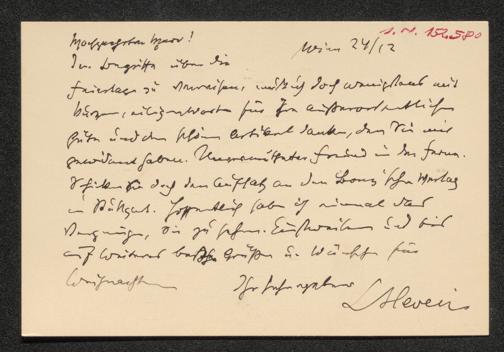 I.N. 152.580
Wien 24/12
Hochgeehrter Herr!
Im Begriffe über die
Feiertage zu verreisen, muß ich doch wenigstens mit
kurzen, eiligen Worten für Ihren außerordentlichen
guten und schönen Artikel danken, den Sie mir
gewidmet haben. Unvermuteter Freund in der Ferne.
Schicken Sie doch den Aufsatz an den Bonz'schen Verlag
in Stuttgart. Hoffentlich habe ich einmal das
Vergnügen, Sie zu sehen. Einstweilen und bis
auf Weiteres beste Grüße u. Wünsche für
Weihnachten
Ihr sehr ergebener
L Hevesi